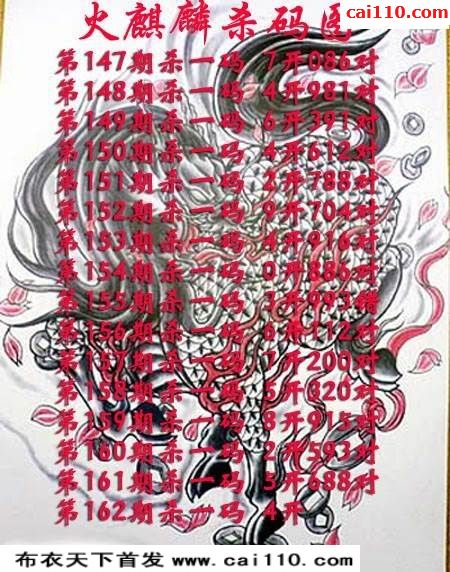 cai110.com
火麒麟杀码图
第147期杀一码 7开086对
第148期杀一码 4开981对
第149期杀一码 6开391对
第150期杀一码 4开612对
第151期杀一码 2开788对
第152期杀一码 9开704对
第153期杀一码 4开916对
第154期杀一码 0开886对
第155期杀一码 3开993错
第156期杀一码 6开112对
第157期杀一码 7开200对
第158期杀一码 5开820对
第159期杀一码 8开915对
第160期杀一码 2开593对
第161期杀一码 5开688对
第162期杀一码 4开
布衣天下首发 www.cai110.com